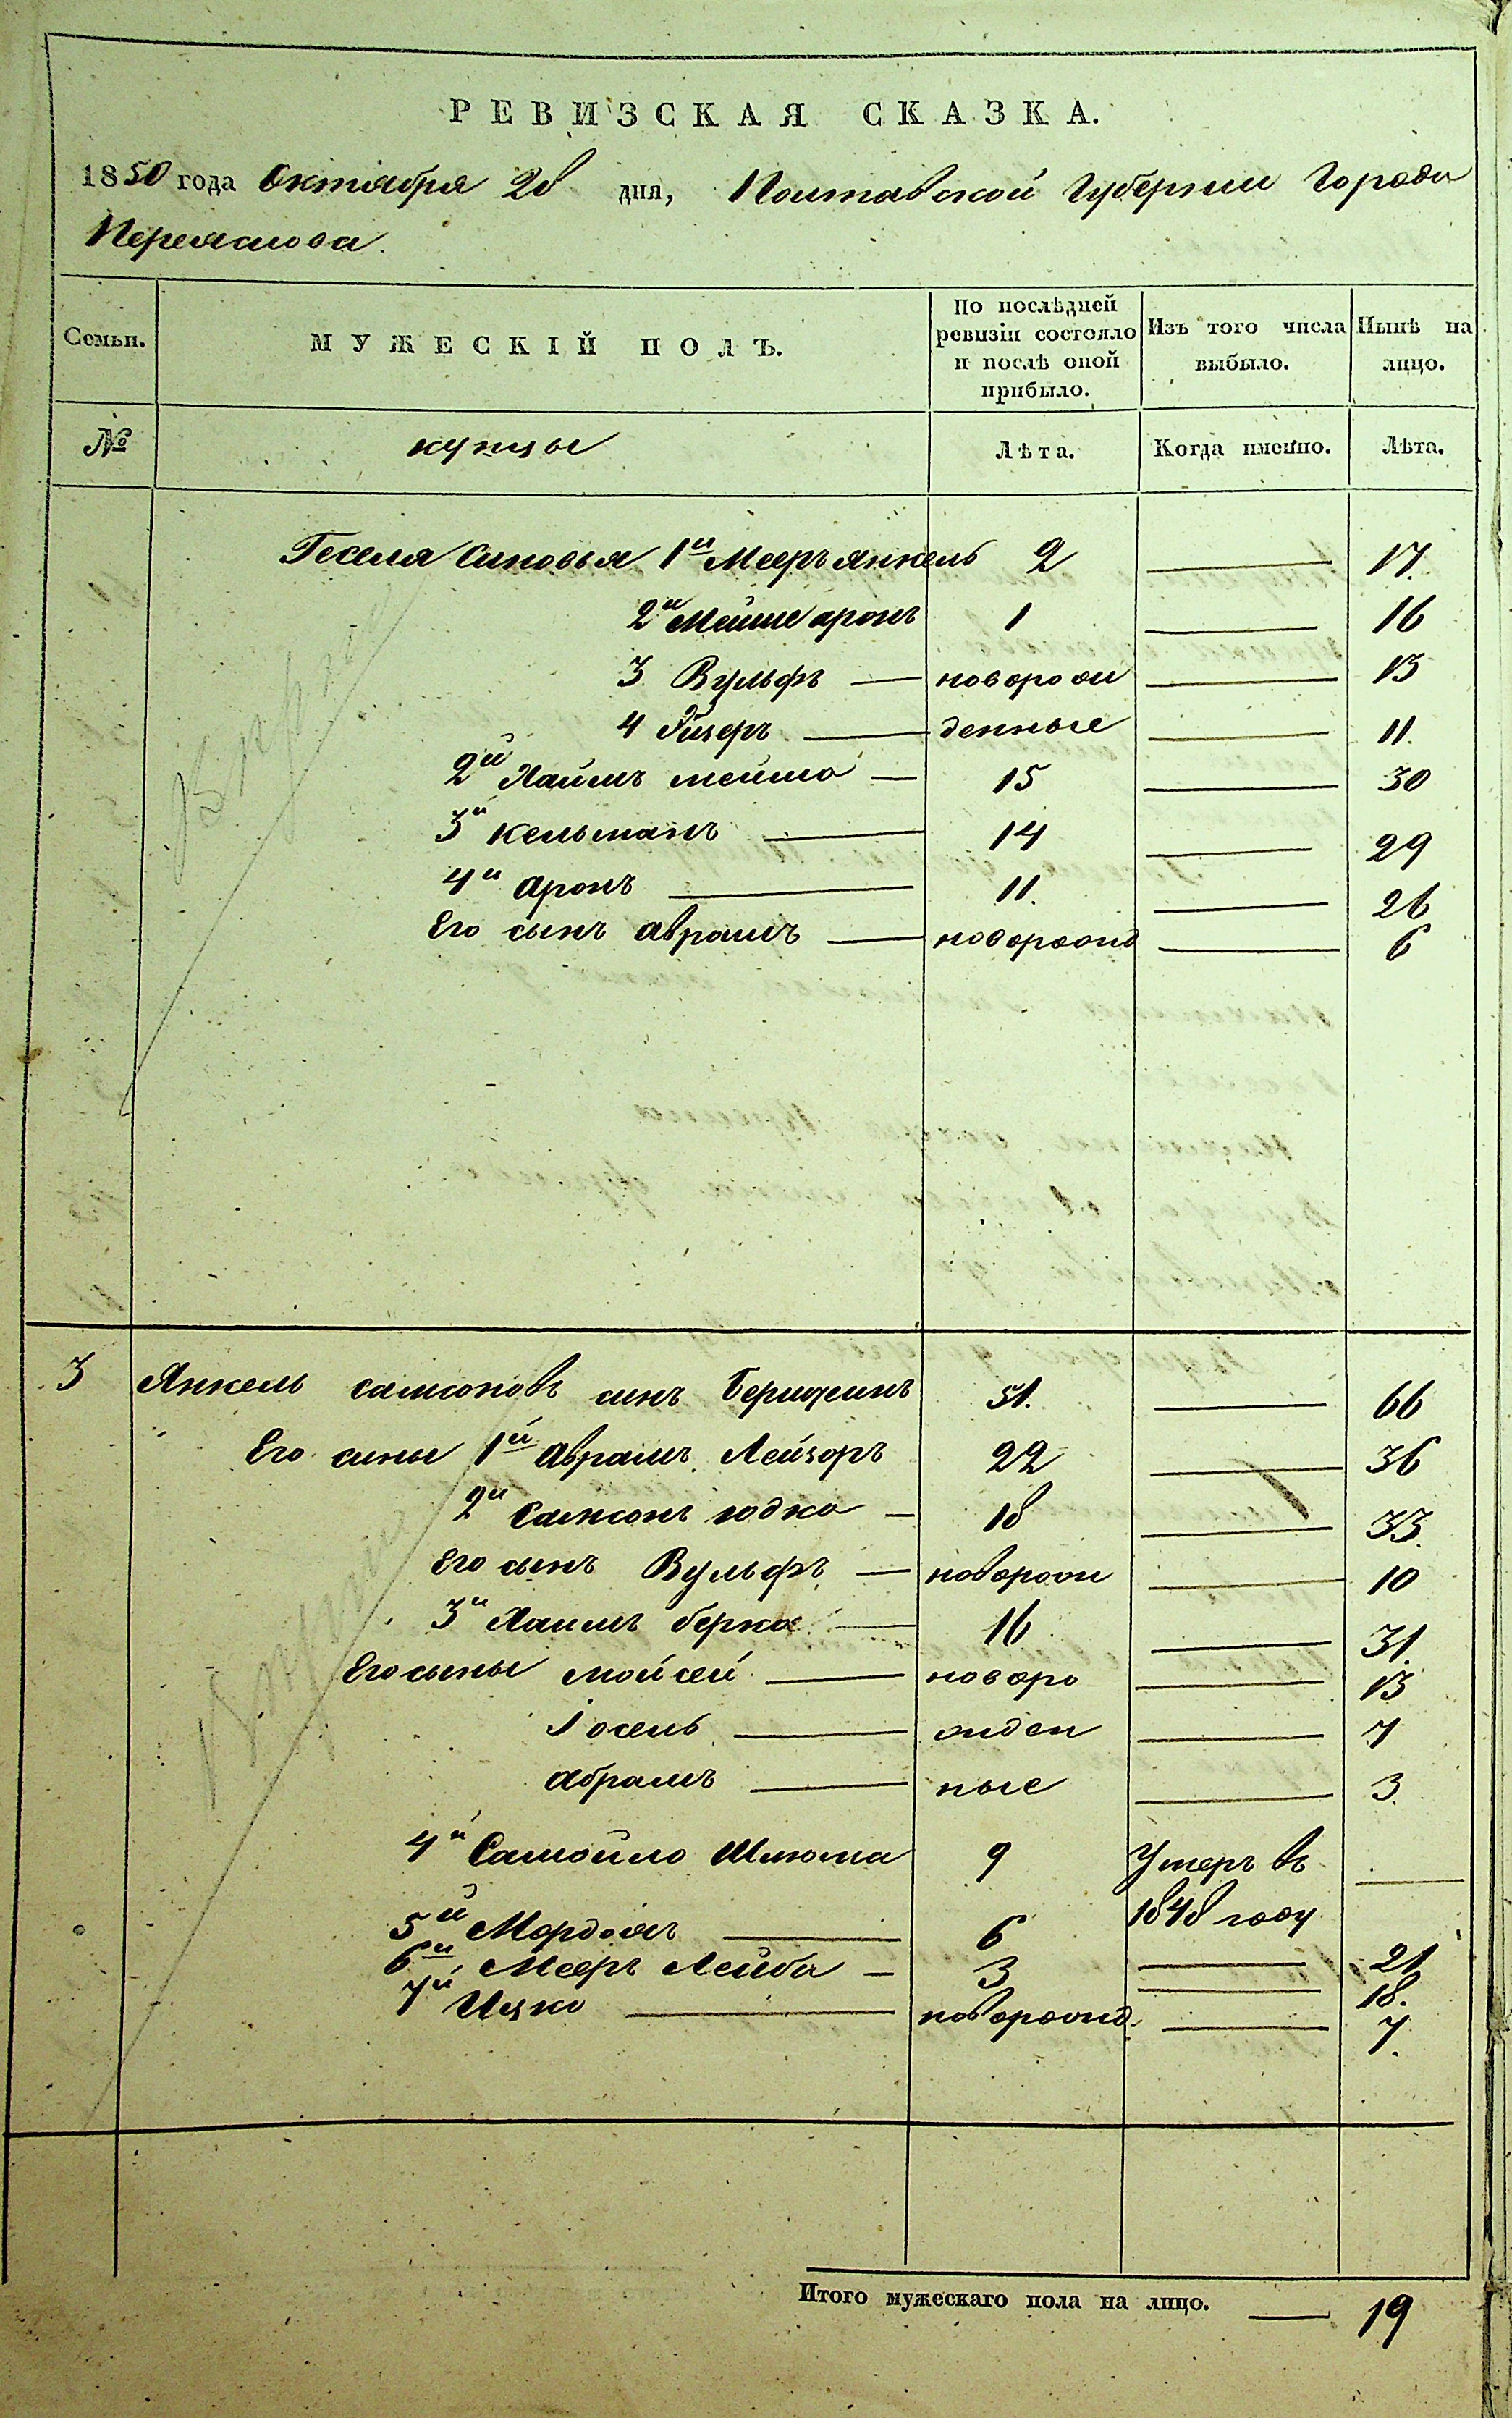 РЕВИЗСКАЯ СКАЗКА.
1850 года Октября 28 дня, Полтавской Губернии Города
Переяслова.
Семьи. МУЖЕСКІЙ ПОЛЪ. По послѣдней ревизіи состояло и послѣ оной прибыло. Изъ того числа выбыло. Нынѣ на лицо.
№ купцы Лѣта. Когда именно. Лѣта.
Геселя синовья 1й Мееръ Янкель 2 — 17.
2й Мейше аронъ 1 — 16
3 Вульфъ — новорож — 13
4 Лизеръ — денные — 11.
2й Хаимъ мейша — 15 — 30
3й Кельманъ — 14 — 29
4й аронъ — 11. — 26
Его сынъ аврамъ — новорожд — 6
3 Янкель самсоновъ синъ 51. — 66
Его сины 1й аврамъ Лейзоръ 22 — 36
2й Самсонъ юдка — 18 — 33.
Его сынъ Вульфъ — новорож — 10
3й Хаимъ берка — 16 — 31.
Его сыны мойсей — новоро — 13
Іосель — жден — 7
абрамъ — ные — 3.
4й Самойло Шлюма 9 Умеръ въ —
1848 году
5й Мордохъ — 6 — 21
6й Мееръ Лейба — 3 — 18.
7й Ицко — новорожд. — 7.
Итого мужескаго пола на лицо. — 19